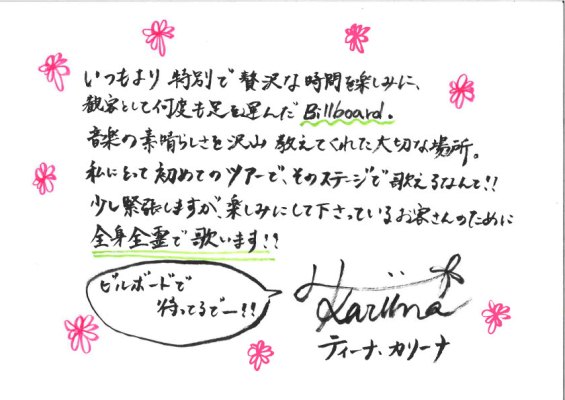 いつもより特別で贅沢な時間を楽しみに、
観客として何度も足を運んだBillboard。
音楽の素晴らしさを沢山教えてくれた大切な場所。
私にとって初めてのツアーで、そのステージで歌えるなんて!!
少し緊張しますが、楽しみにして下さっているお客さんのために
全身全霊で歌います!!
ビルボードで
待ってるでー!!
Kariina
ティーナ・カリーナ